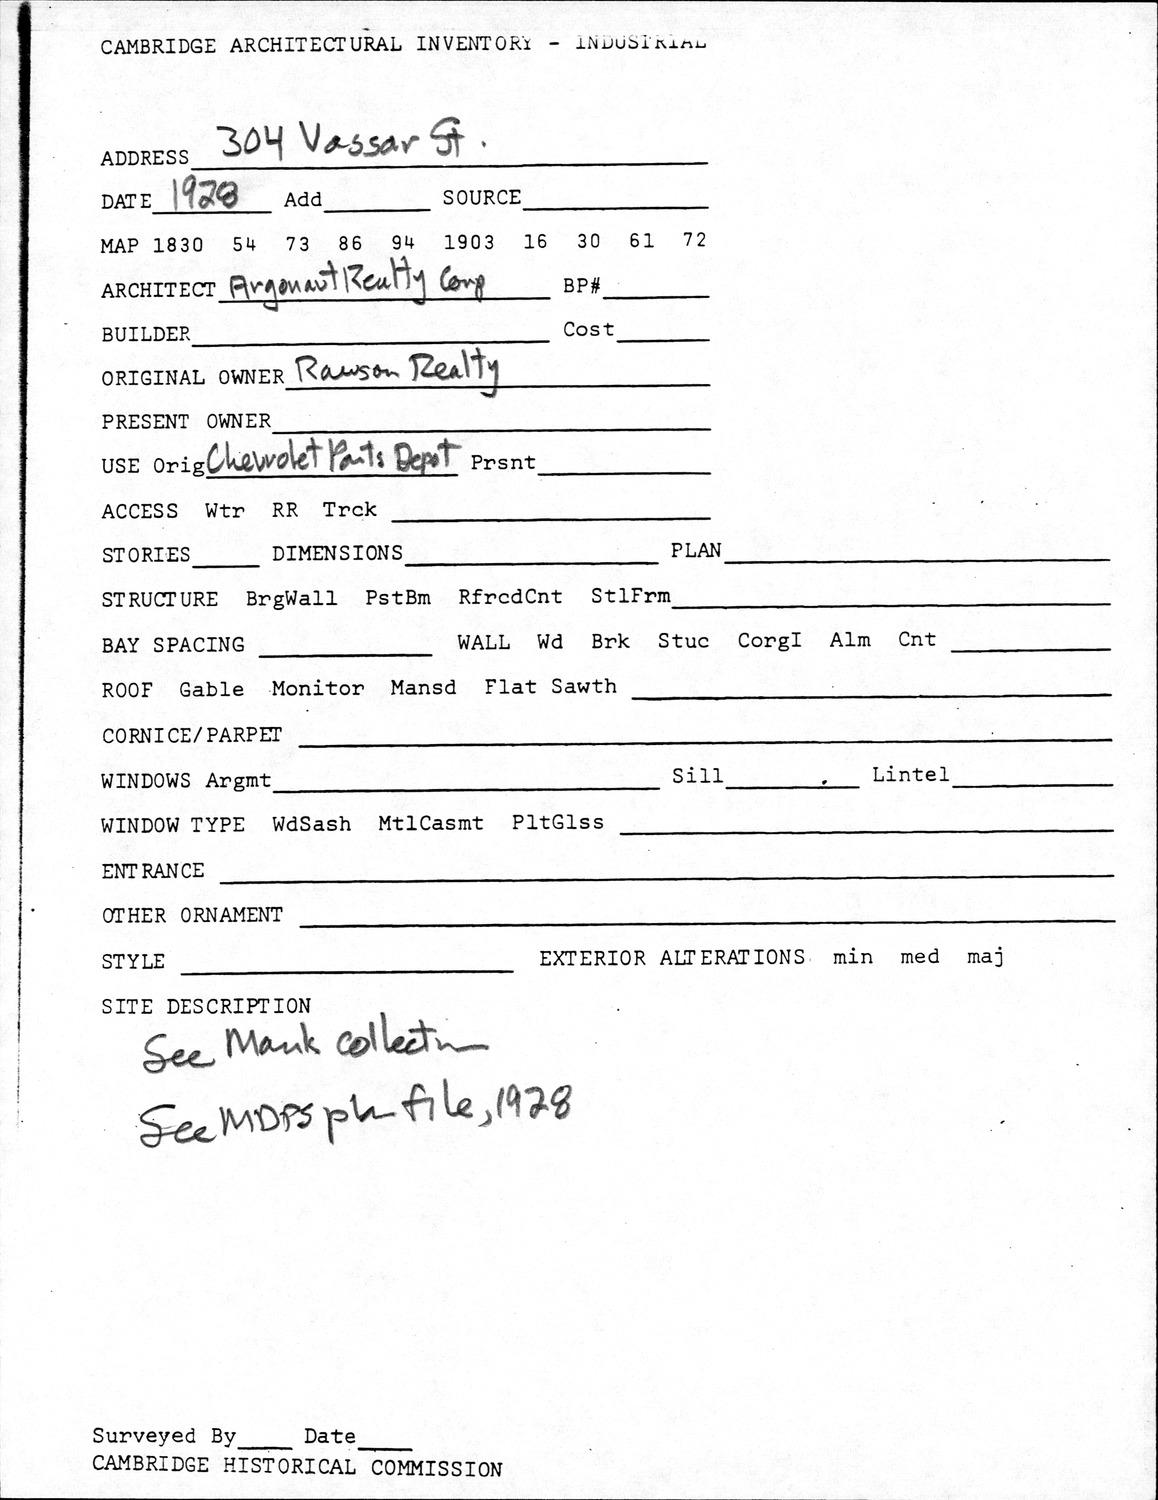 CAMBRIDGE ARCHITECTURAL INVENTORY - INDUSTRIAL
ADDRESS 304 Vassar St.
DATE 1928 Add SOURCE
MAP 1830 54 73 86 94 1903 16 30 61 72
ARCHITECT Argonaut Realty Corp BP#
BUILDER Cost
ORIGINAL OWNER Rawson Realty
PRESENT OWNER
USE Orig Chevrolet Parts Depot Prsnt
ACCESS Wtr RR Trck
STORIES DIMENSIONS PLAN
STRUCTURE BrgWall PstBm RfrcdCnt StlFrm
BAY SPACING WALL Wd Brk Stuc CorgI Alm Cnt
ROOF Gable Monitor Mansd Flat Sawth
CORNICE/PARPET
WINDOWS Argmt Sill Lintel
WINDOW TYPE WdSash MtlCasmt PltGlss
ENTRANCE
OTHER ORNAMENT
STYLE EXTERIOR ALTERATIONS min med maj
SITE DESCRIPTION
See Mank collectn
See MDPS ph file, 1928
Surveyed By Date
CAMBRIDGE HISTORICAL COMMISSION